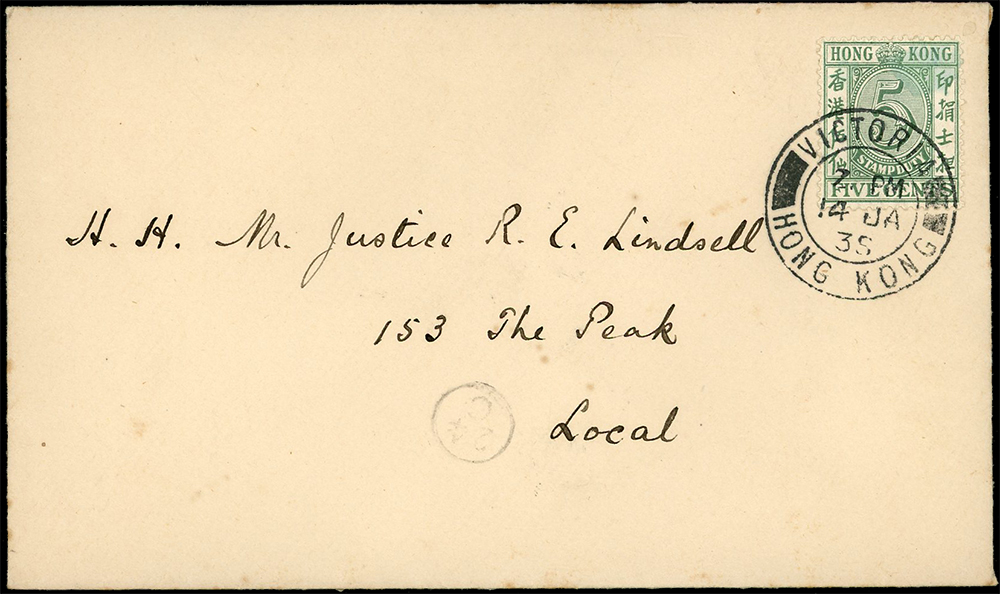 HONG KONG
香港
印捐士
5
STAMP DUTY
FIVE CENTS
VICTORIA
7 PM
14 JA
38
HONG KONG
H. H. Mr. Justice R. E. Lindsell
153 The Peak
Local